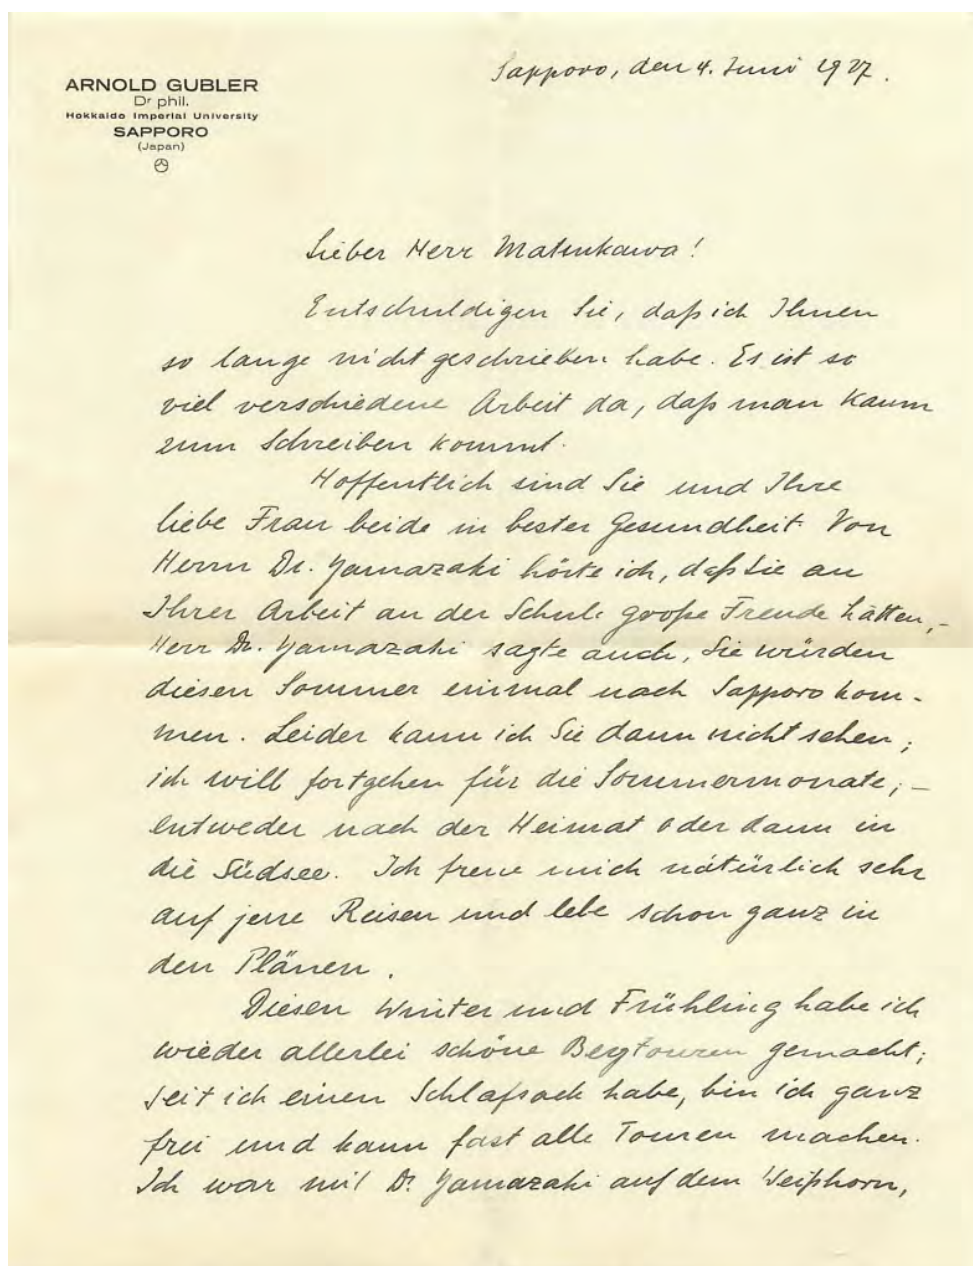 ARNOLD GUBLER
Dr phil.
Hokkaido Imperial University
SAPPORO
(Japan)
Sapporo, den 4. Juni 1927.
Lieber Herr Matsukawa!
Entschuldigen Sie, daß ich Ihnen
so lange nicht geschrieben habe. Es ist so
viel verschiedene Arbeit da, daß man kaum
zum Schreiben kommt.
Hoffentlich sind Sie und Ihre
liebe Frau beide in bester Gesundheit. Von
Herrn Dr. Yamazaki hörte ich, daß Sie an
Ihrer Arbeit an der Schule große Freude hätten,-
Herr Dr. Yamazaki sagte auch, Sie würden
diesen Sommer einmal nach Sapporo kom-
men. Leider kann ich Sie dann nicht sehen;
ich will fortgehen für die Sommermonate; –
entweder nach der Heimat oder dann in
die Südsee. Ich freue mich natürlich sehr
auf jene Reisen und lebe schon ganz in
den Plänen.
Diesen Winter und Frühling habe ich
wieder allerlei schöne Bergtouren gemacht;
seit ich einen Schlafsack habe, bin ich ganz
frei und kann fast alle Touren machen.
Ich war mit Dr. Yamazaki auf dem Weißhorn,